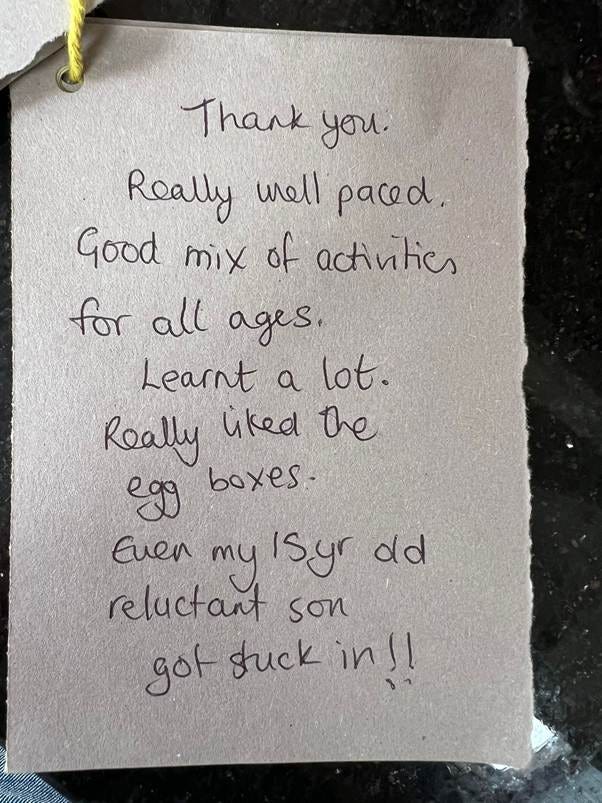 Thank you.
Really well paced.
Good mix of activities
for all ages.
Learnt a lot.
Really liked the
egg boxes.
Even my 15yr old
reluctant son
got stuck in!!